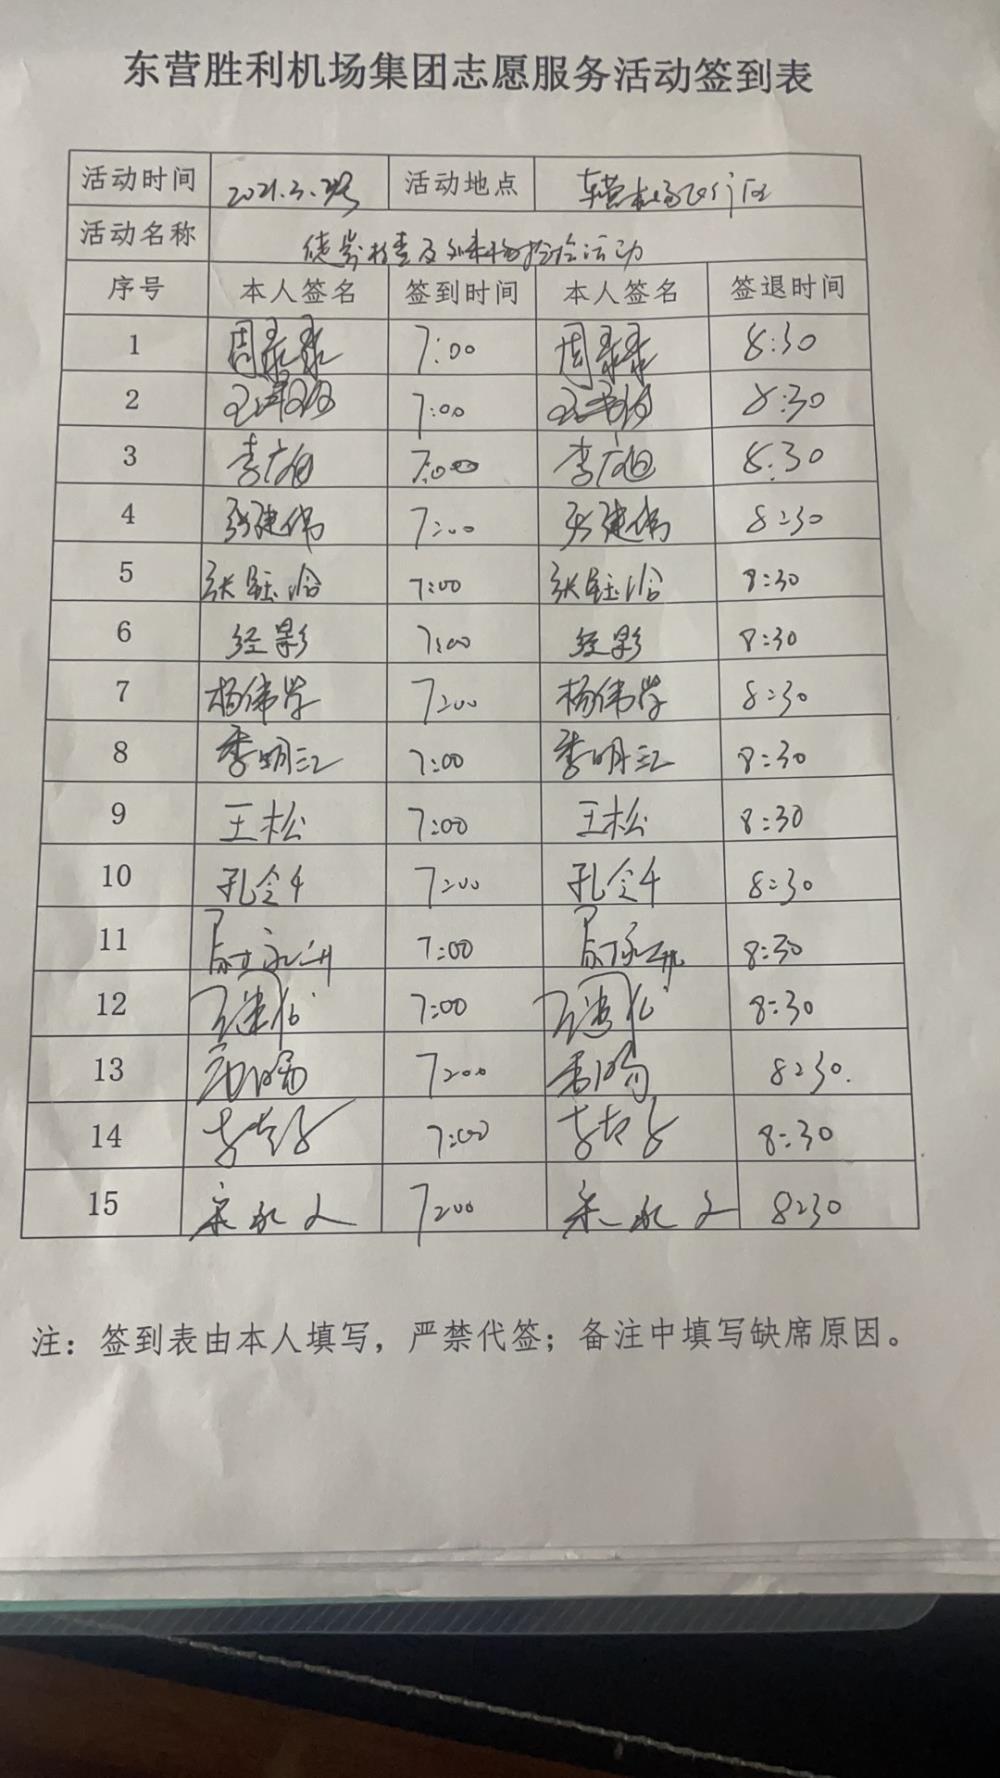 东营胜利机场集团志愿服务活动签到表
活动时间 2021.3. 活动地点 东营机场飞行区
活动名称 徒步检查及外来物捡拾活动
序号 本人签名 签到时间 本人签名 签退时间
1 周 7:00 周 8:30
2 7:00 8:30
3 李广旭 7:00 李广旭 8:30
4 张建伟 7:00 张建伟 8:30
5 张钰冶 7:00 张钰冶 8:30
6 经影 7:00 经影 8:30
7 杨伟学 7:00 杨伟学 8:30
8 季明江 7:00 季明江 8:30
9 王松 7:00 王松 8:30
10 孔令千 7:00 孔令千 8:30
11 7:00 8:30
12 7:00 8:30
13 7:00 8:30.
14 7:00 8:30
15 7:00 8:30
注：签到表由本人填写，严禁代签；备注中填写缺席原因。